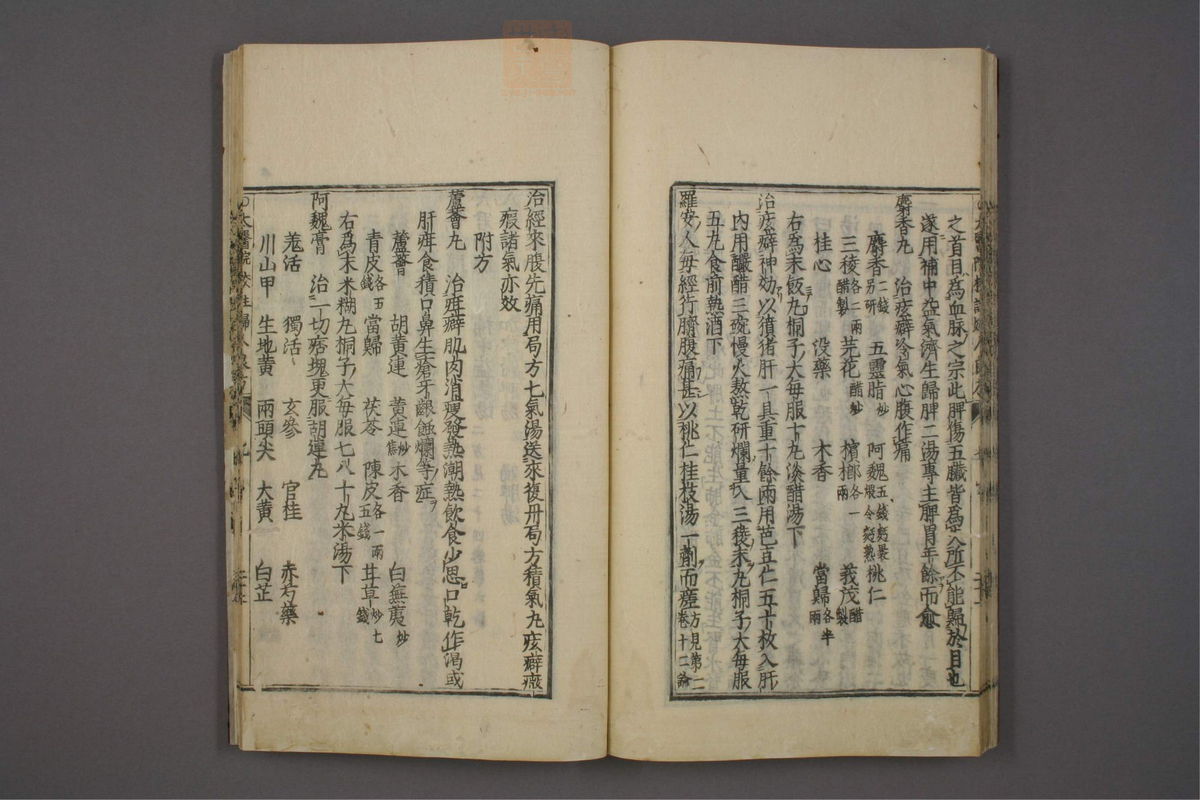 之首目爲血脉之宗此脾傷五臟皆爲
所不能歸於目也
遂用補中益氣濟生歸脾二湯專主脾胃年餘而愈
麝香丸　治痃癖冷氣心腹作痛
麝香二錢另研　五靈脂炒　阿魏五錢　桃仁
三稜各二兩醋製　芫花醋炒　檳榔各一兩　莪茂醋製
桂心　没藥　木香　當歸各半兩
右爲末飯丸桐子大每服十丸淡醋湯下
治痃癖神効以獖猪肝一具重十餘兩用芭豆仁五十枚入肝
内用釅醋三碗慢火熬乾研爛量入三稜末丸桐子大每服
五丸食前熱酒下
羅安人每經行臍腹痛甚以桃仁桂枝湯一劑而瘥方見第二卷十二論
治經來腹先痛用局方七氣湯送來復丹局方積氣丸痃癖癥
瘕諸氣亦效
附方
蘆薈丸　治疳癖肌肉消瘦發熱潮熱飲食少思口乾作渴或
肝疳食積口鼻生瘡牙齦蝕爛等症
蘆薈　胡黄連　黄連炒焦　木香　白蕪荑炒
青皮各五錢　當歸　茯苓　陳皮各一兩五錢　甘草炒七錢
右爲末米糊丸桐子大每服七八十丸米湯下
阿魏膏　治一切痞塊更服胡連丸
羗活　獨活　玄參　官桂　赤芍藥
川山甲　生地黄　兩頭尖　大黄　白芷